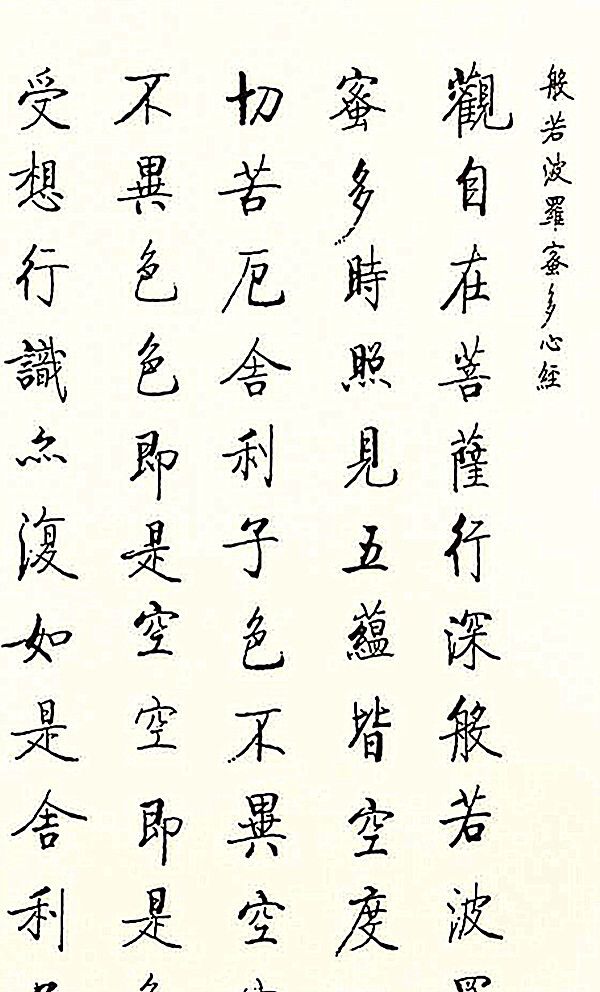 般若波羅蜜多心經
觀自在菩薩行深般若波
蜜多時照見五蘊皆空度
切苦厄舍利子色不異空
不異色色即是空空即是
受想行識亦復如是舍利